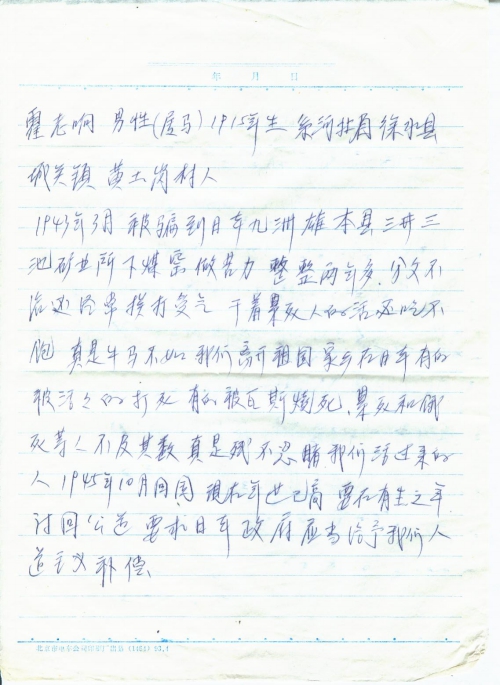 年 月 日
霍老响 男性(属马)1915年生 系河北省徐水县
城关镇 黄土岗村人
1943年3月 被骗到日本九洲雄本县三井三
池矿业所下煤窑做苦力 整整两年多,分文不
给还经常挨打受气 干着累死人的活还吃不
饱 真是牛马不如 我们离开祖国家乡在日本有的
被活活的打死 有的被瓦斯烧死、累死和饿
死等人不及其数 真是残不忍睹 我们活过来的
人 1945年10月回国 现在年世已高 要在有生之年
讨回公道 要求日本政府应当给予我们人
道主义补偿
北京市电车公司印刷厂出品 (1551) 93.4